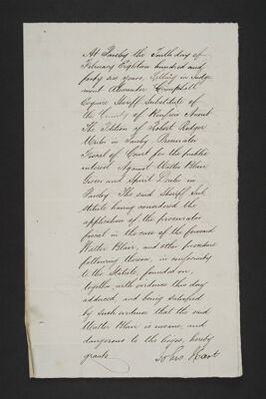 At Paisley the Tenth day of
February Eighteen hundred and
forty six years, Sitting in Judge
ment Alexander Campbell
Esquire Sheriff Substitute of
the County of Renfrew Anent
The Petition of Robert Rodger
Writer in Paisley Procurator
Fiscal of Court for the public
interest Against Walter Blair
Grocer and Spirit Dealer in
Paisley The said Sheriff Sub
stitute having considered the
application of the procurator
fiscal in the case of the
Walter Blair, and other procedure
following thereon, in conformity
to the Statute, founded on,
together with evidence this day
adduced, and being satisfied
by such evidence that the said
Walter Blair is insane, and
dangerous to the lieges, hereby
grants
John Hart